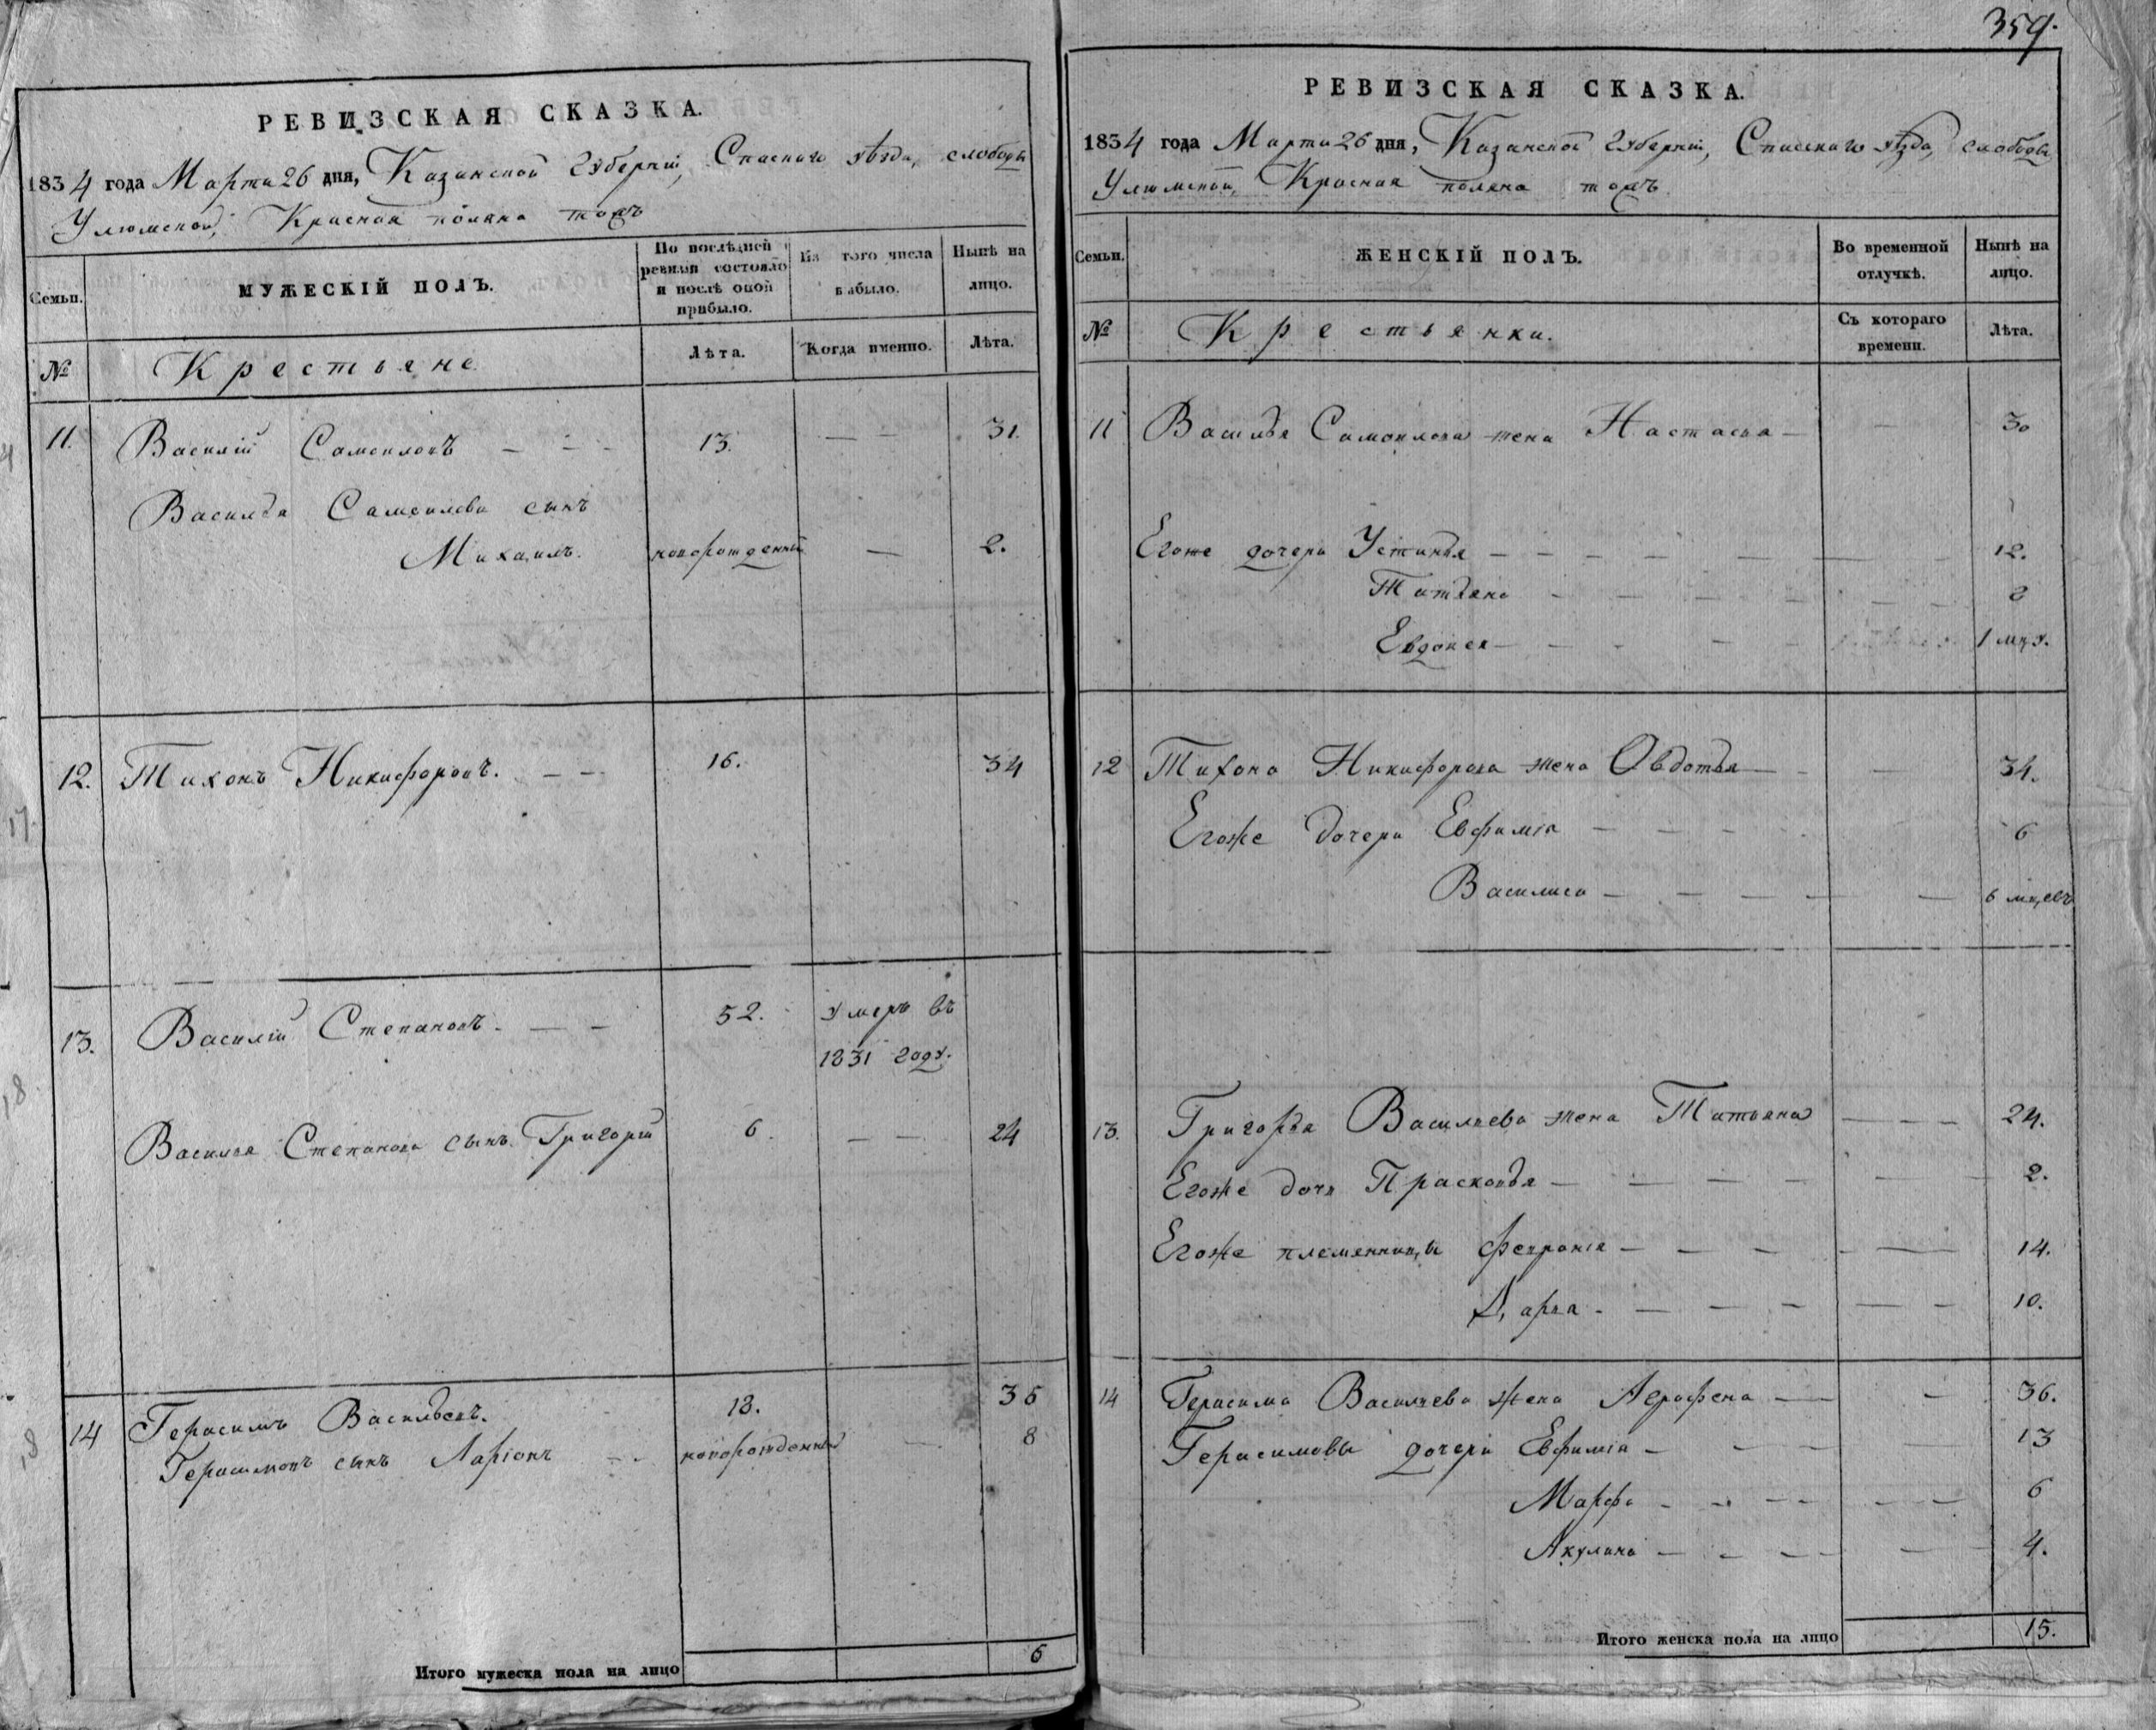 359.
РЕВИЗСКАЯ СКАЗКА.
1834 года Марта 26 дня, Казанской Губерніи, Спаскаго уѣзда, слободы
Улюмской, Красная поляна тожъ
Семьи.
МУЖЕСКІЙ ПОЛЪ.
По послѣдней ревизіи состояло и послѣ оной прибыло.
Из того числа выбыло.
Нынѣ на лицо.
№
Крестьяне
Лѣта.
Когда именно.
Лѣта.
11. Василій Самойловъ — — — 13. — — 31.
Василья Самойлова сынъ
Михаилъ. новорожденный — 2.
12. Тихонъ Никифоровъ. — — 16. 34
13. Василій Степановъ. — — 52. умеръ въ
1831 году.
Василья Степанова сынъ Григорій 6. — — 24
14 Герасимъ Васильевъ. 18. 36
Герасимовъ сынъ Ларіонъ — — новорожденный — 8
Итого мужеска пола на лицо 6
РЕВИЗСКАЯ СКАЗКА.
1834 года Марта 26 дня, Казанской Губерніи, Спасскаго уѣзда, слободы
Улюмской, Красная поляна тожъ
Семьи.
ЖЕНСКІЙ ПОЛЪ.
Во временной отлучкѣ.
Нынѣ на лицо.
№
Крестьянки.
Съ котораго времени.
Лѣта.
11 Василья Самойлова жена Настасья — — 30
Егоже дочери Устинья — — — — — — — 12.
Татьяна — — — — — — — 2
Евдокея — — — — — 1 мцх.
12 Тихона Никифорова жена Овдотья — — — 34.
Егоже дочери Евфимія — — — — — 6
Василиса — — — — — — 6 мцовъ
13. Григорья Васильева жена Татьяна — — — 24.
Егоже дочь Прасковья — — — — — — 2.
Егоже племянницы Февронія — — — — — 14.
Дарья. — — — — — 10.
14 Герасима Васильева жена Аграфена — — — 36.
Герасимовы дочери Евфимія — — — 13
Марфа — — — — — — — 6
Акулина — — — — — — 4.
Итого женска пола на лицо 15.